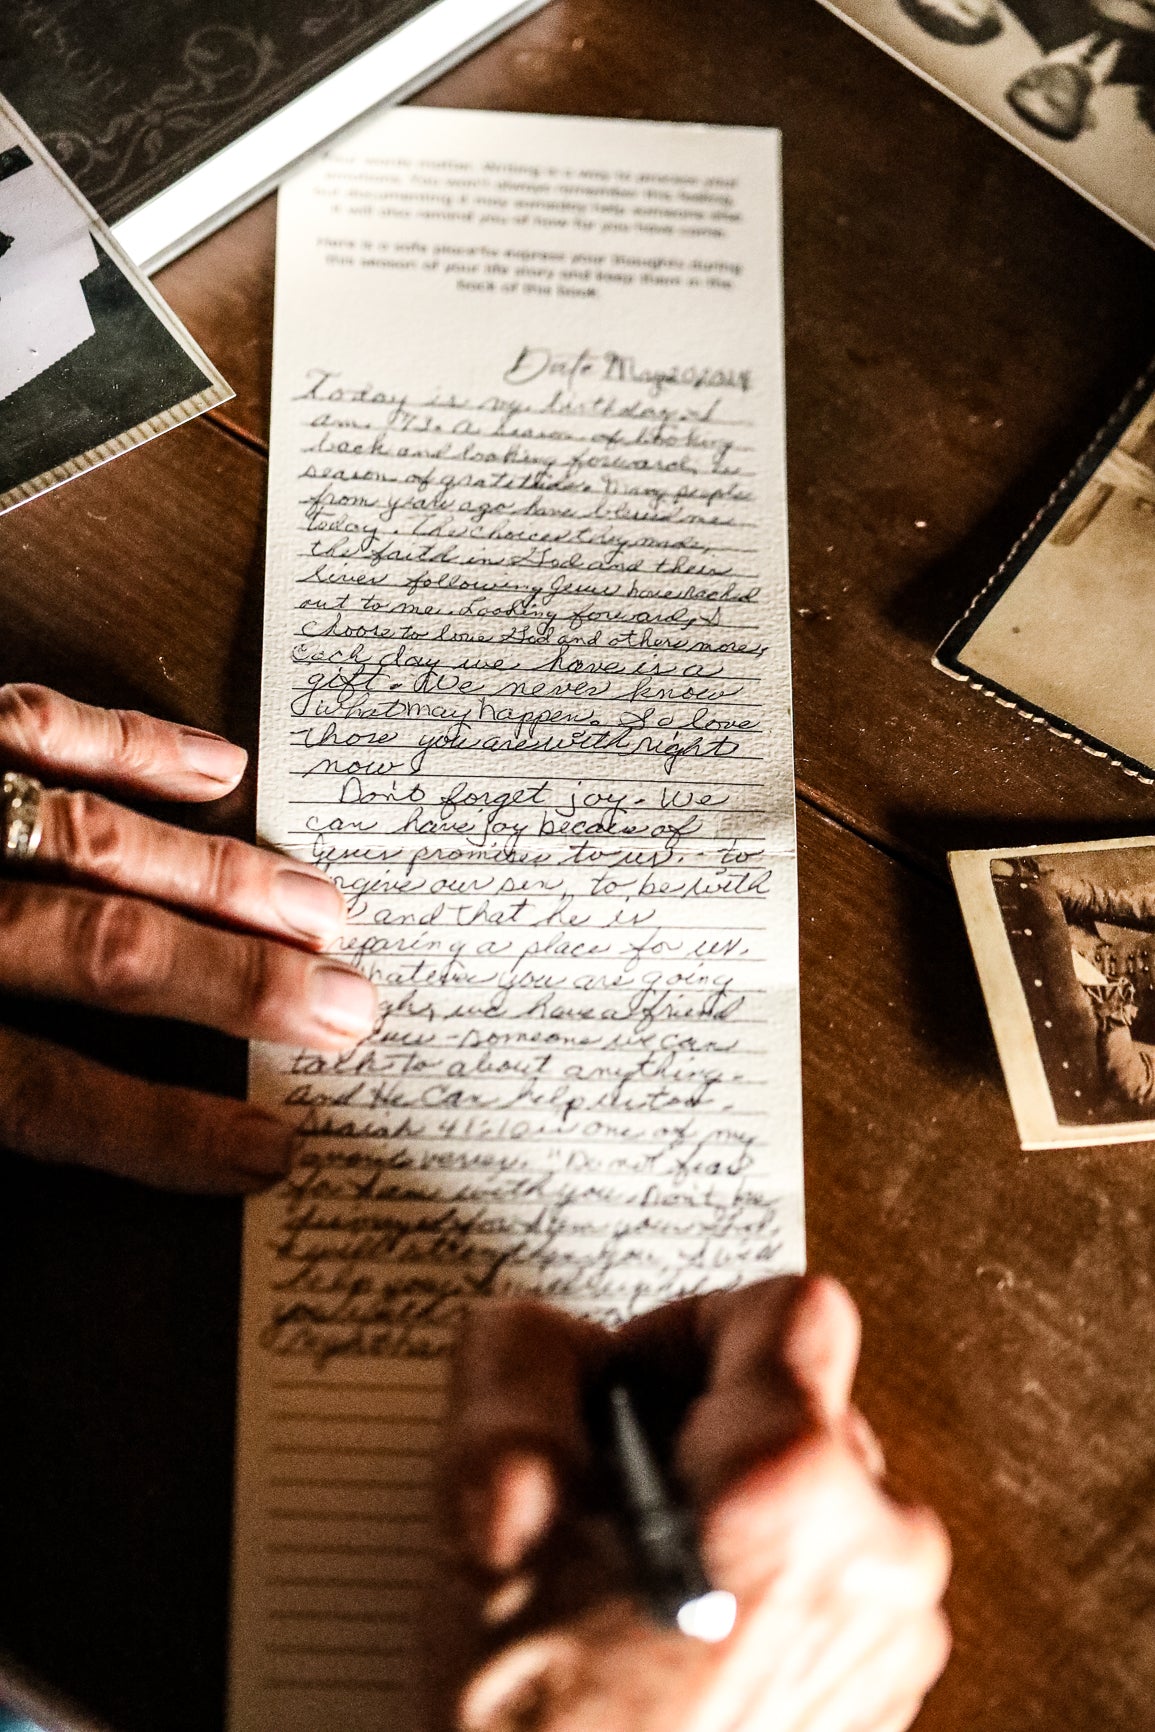 Your words matter. Writing is a way to process your
emotions. You won't always remember this feeling,
but documenting it may someday help someone else.
It will also remind you of how far you have come.
Here is a safe place to express your thoughts during
this season of your life story and keep them in the
back of this book.
Date May 20 2024
Today is my birthday. I
am 73. A season of looking
back and looking forward, a
season of gratitude. Many people
from years ago have blessed me
today. The choices they made,
the faith in God and their
lives following Jesus have reached
out to me. Looking forward, I
choose to love God and others more,
Each day we have is a
gift. We never know
what may happen. So love
those you are with right
now
Don't forget joy. We
can have joy because of
Jesus promises to us. - to
rgive our sin, to be with
and that he is
reparing a place for us.
hatever you are going
gh, we have a friend
esus - someone we can
talk to about anything.
And He can help us too.
Isaiah 41:10 is one of my
favorite verses. "Do not fear
for I am with you. Don't be
dismayed for I am your God.
I will strengthen you, I will
help you, I will uphold
you with
right han